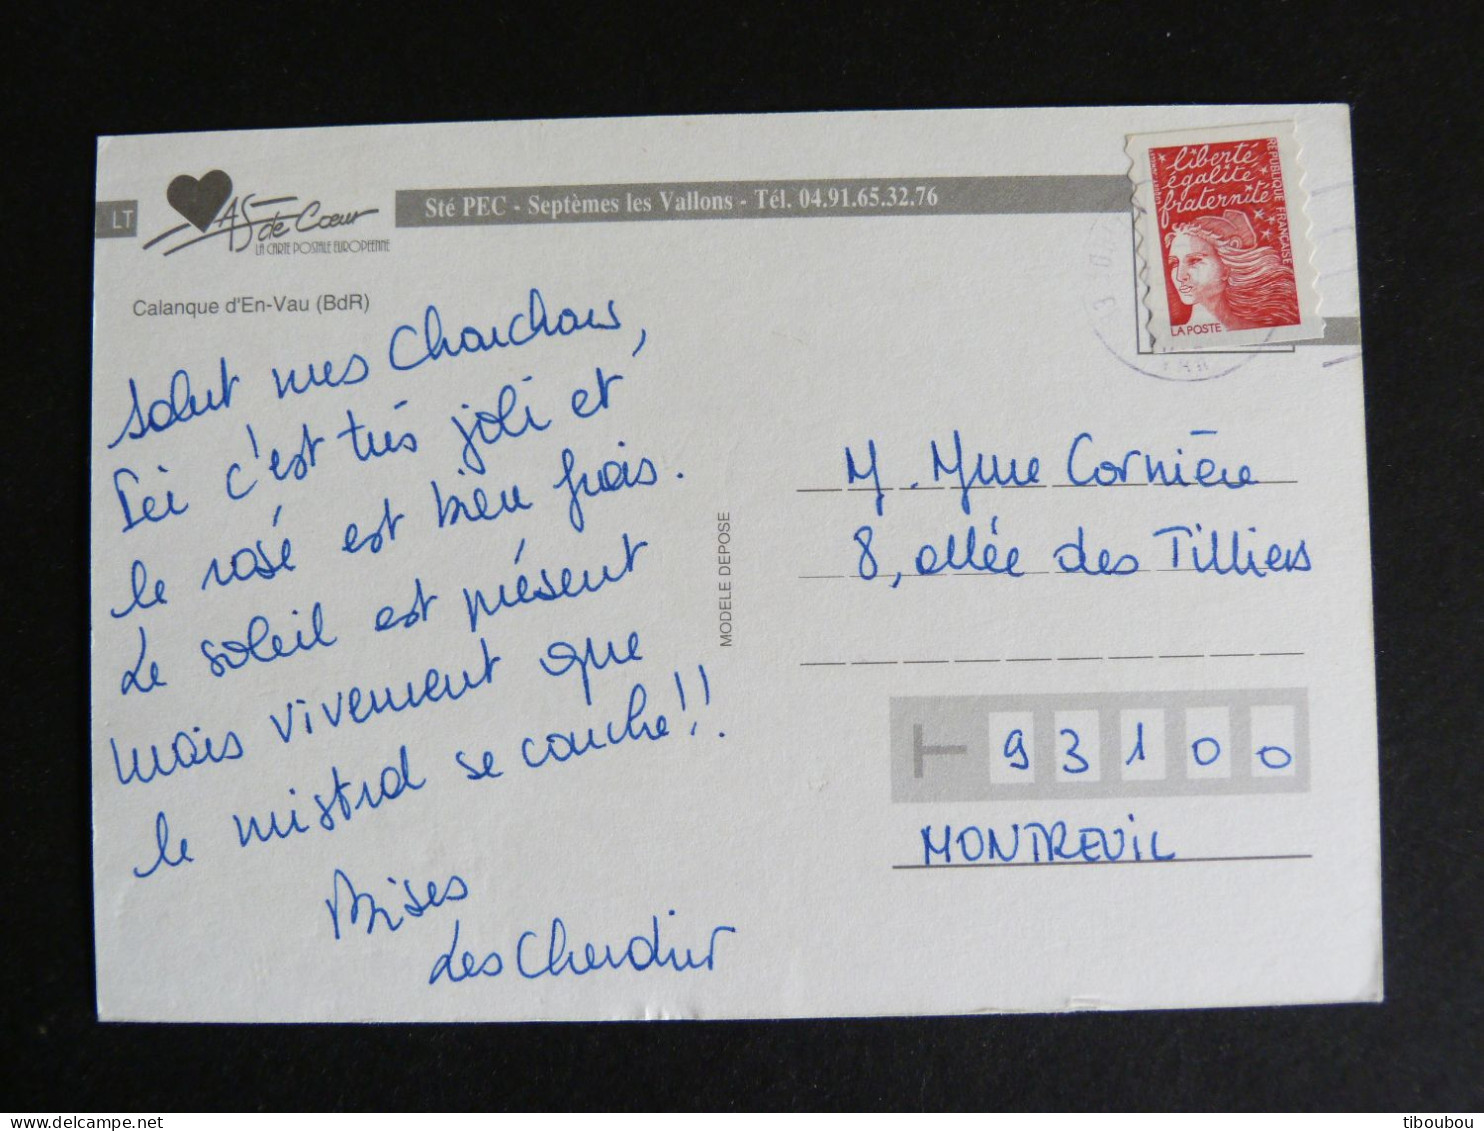 LT
AS de Cœur
LA CARTE POSTALE EUROPEENNE
Sté PEC - Septèmes les Vallons - Tél. 04.91.65.32.76
Calanque d'En-Vau (BdR)
Salut mes Chouchous,
Ici c'est très joli et
le rosé est bien frais.
Le soleil est présent
mais vivement que
le mistral se couche!!
Bises
Les Cherdier
MODELE DEPOSE
liberté
égalité
fraternité
REPUBLIQUE FRANÇAISE
LA POSTE
M. Mme Cornière
8, allée des Tilliers
T 93100
MONTREUIL
tiboubou